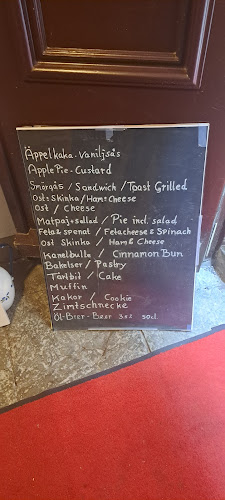 Äppelkaka-Vaniljsås
Apple Pie-Custard
Smörgås / Sandwich / Toast Grilled
Ost & Skinka / Ham & Cheese
Ost / Cheese
Matpaj + sallad / Pie incl. salad
Feta & spenat / Fetacheese & Spinach
Ost Skinka / Ham & Cheese
Kanelbulle / Cinnamon Bun
Bakelser / Pastry
Tårtbit / Cake
Muffin
Kakor / Cookie
Zimtschnecke
Öl-Bier-Beer